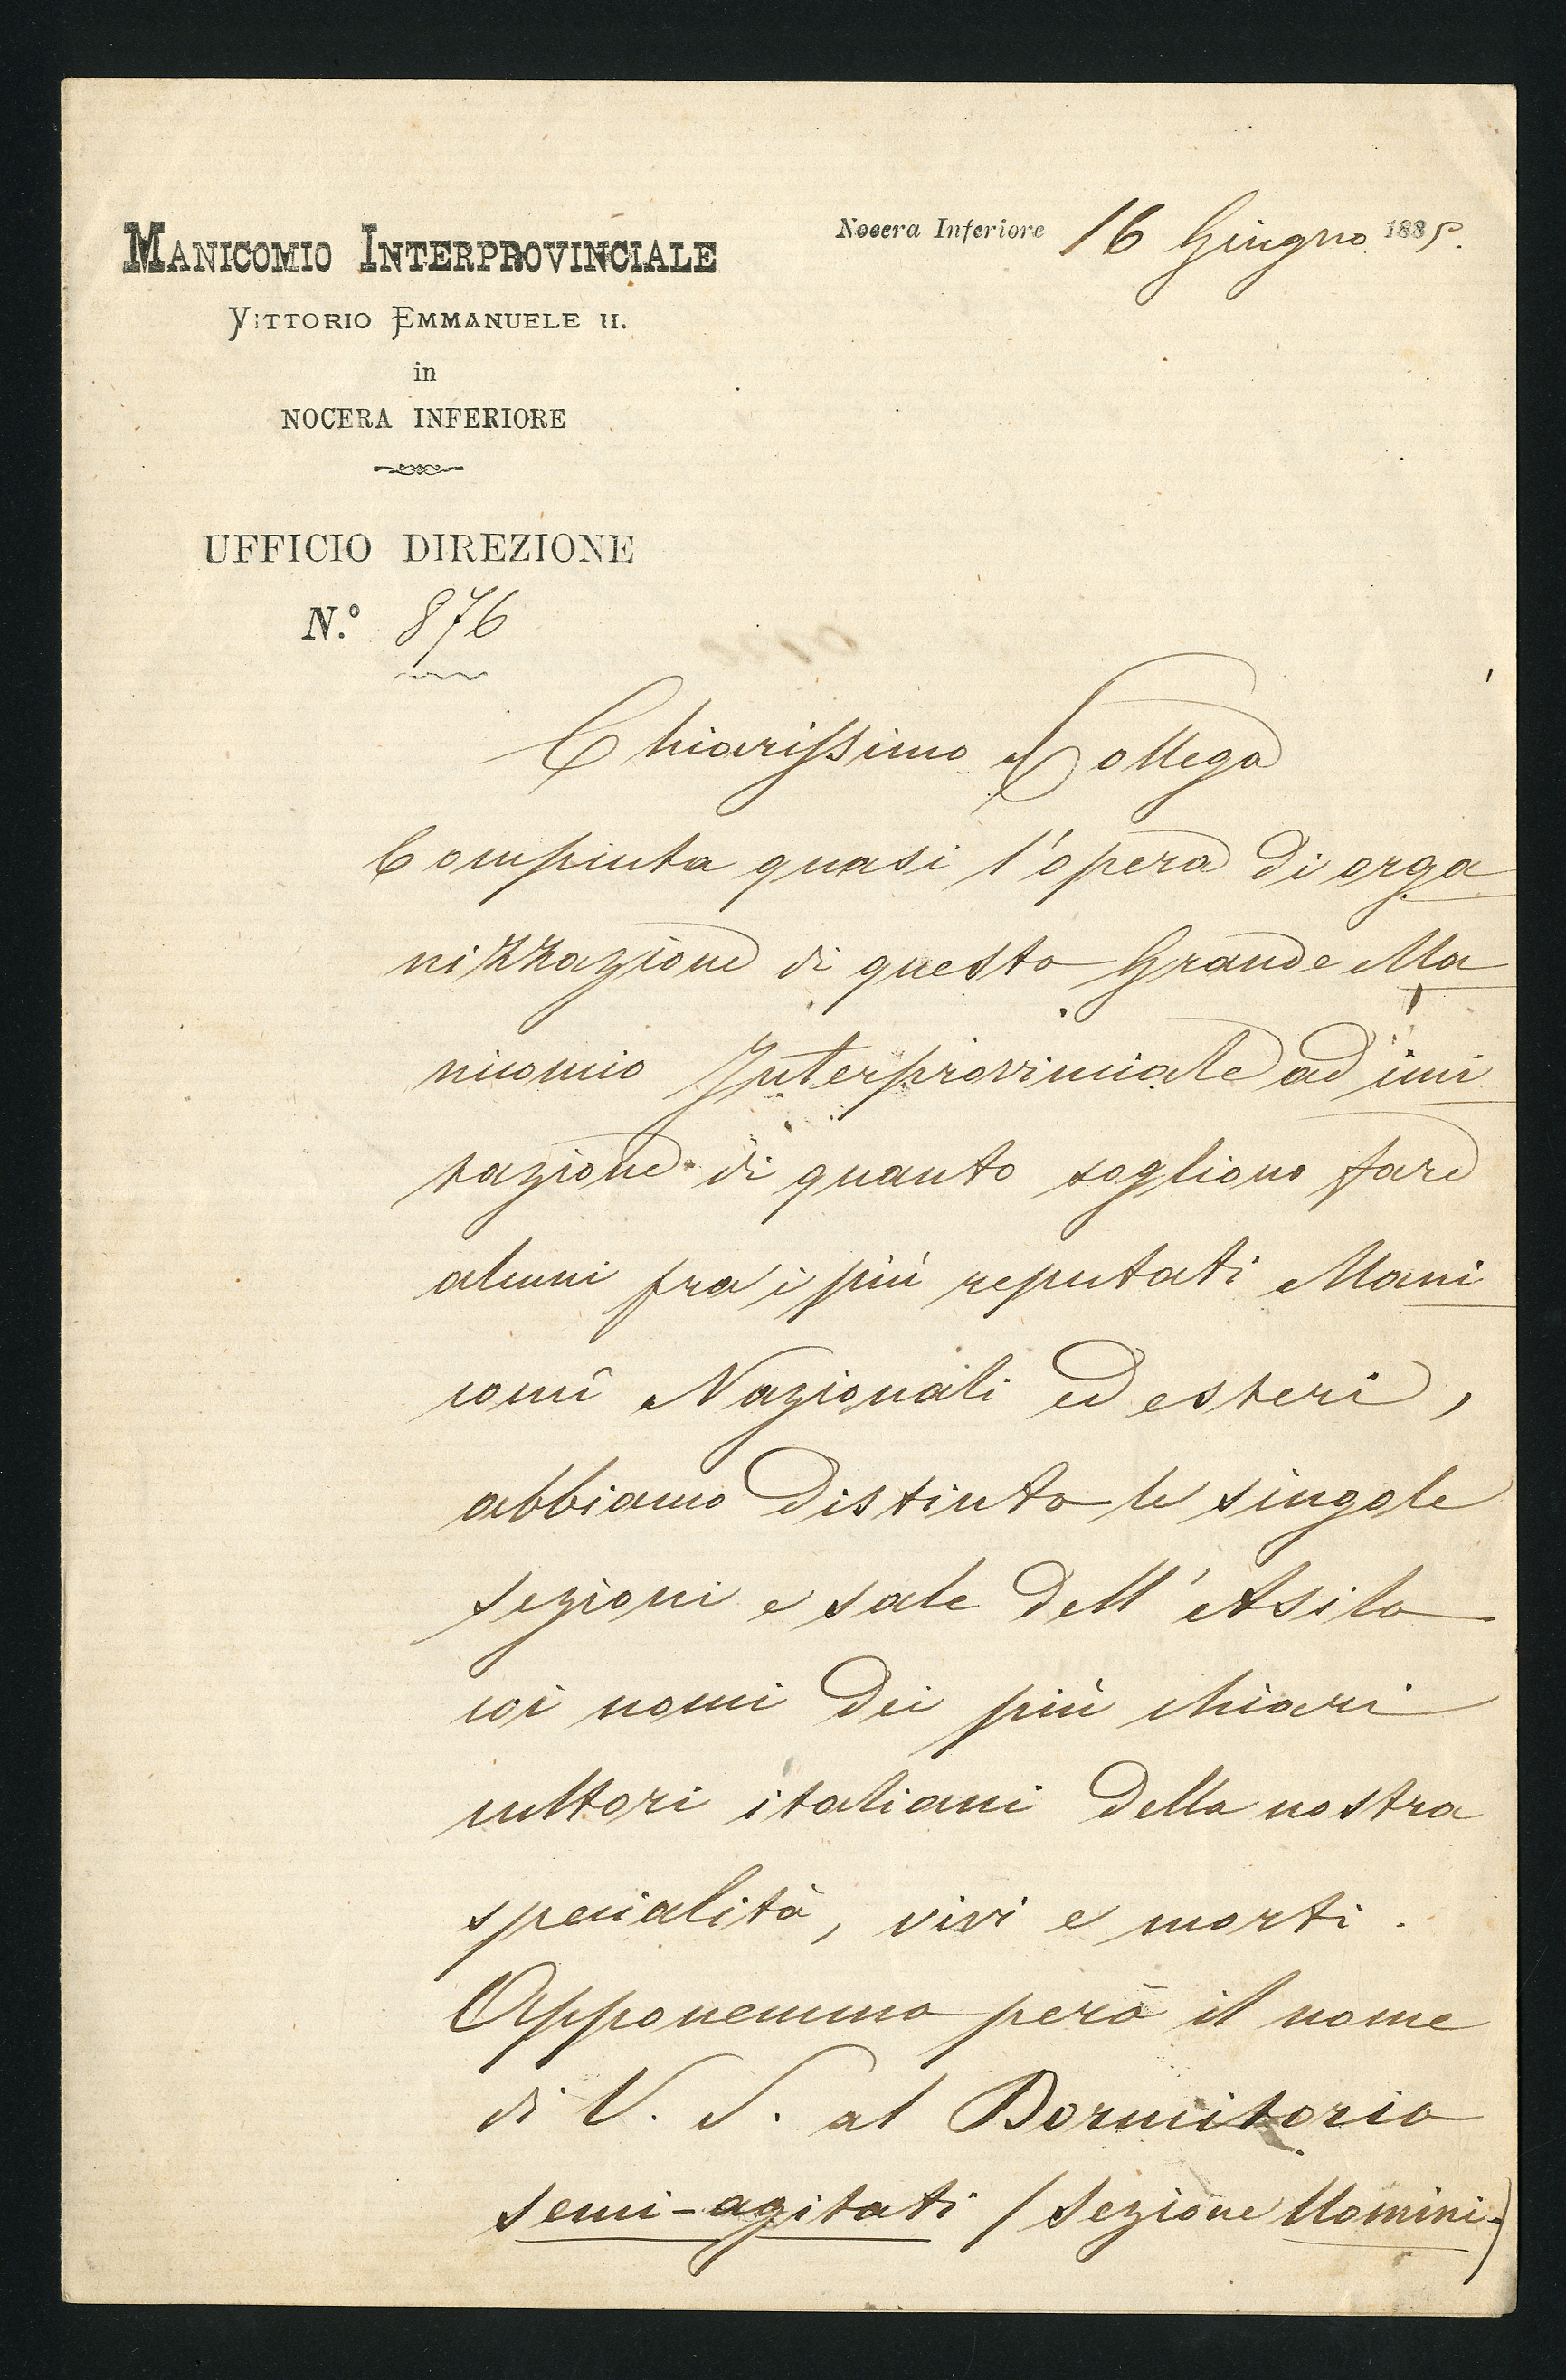 Manicomio Interprovinciale
Vittorio Emmanuele II.
in
NOCERA INFERIORE
UFFICIO DIREZIONE
N.º 876
Nocera Inferiore 16 Giugno 1885.
Chiarissimo Collega
Compiuta quasi l'opera di orga
nizzazione di questo Grande Ma
nicomio Interprovinciale ad imi
tazione di quanto sogliono fare
alcuni fra i più reputati Mani
comî Nazionali ed esteri,
abbiamo distinto le singole
sezioni e sale dell'Asilo
coi nomi dei più chiari
cultori italiani della nostra
specialità, vivi e morti.
Apponemmo però il nome
di V. S. al Dormitorio
semi-agitati (Sezione Uomini)